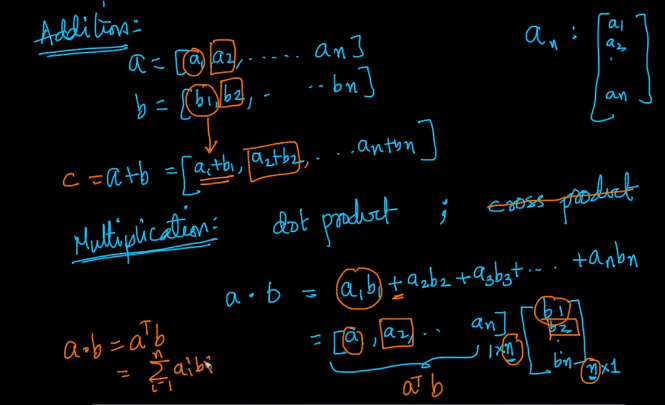 Addition:
a = [a1, a2, ..... an]
b = [b1, b2, . .. bn]
an : [a1
a2
.
an]
c = a+b = [a1+b1, a2+b2, ... an+bn]
Multiplication: dot product ; cross product
a · b = a1b1 + a2b2 + a3b3 + .... + anbn
= [a1, a2, .. an] 1×n [b1
b2
:
bn] n×1
aᵀb
a·b = aᵀb
= ∑ⁿᵢ₌₁ aibi